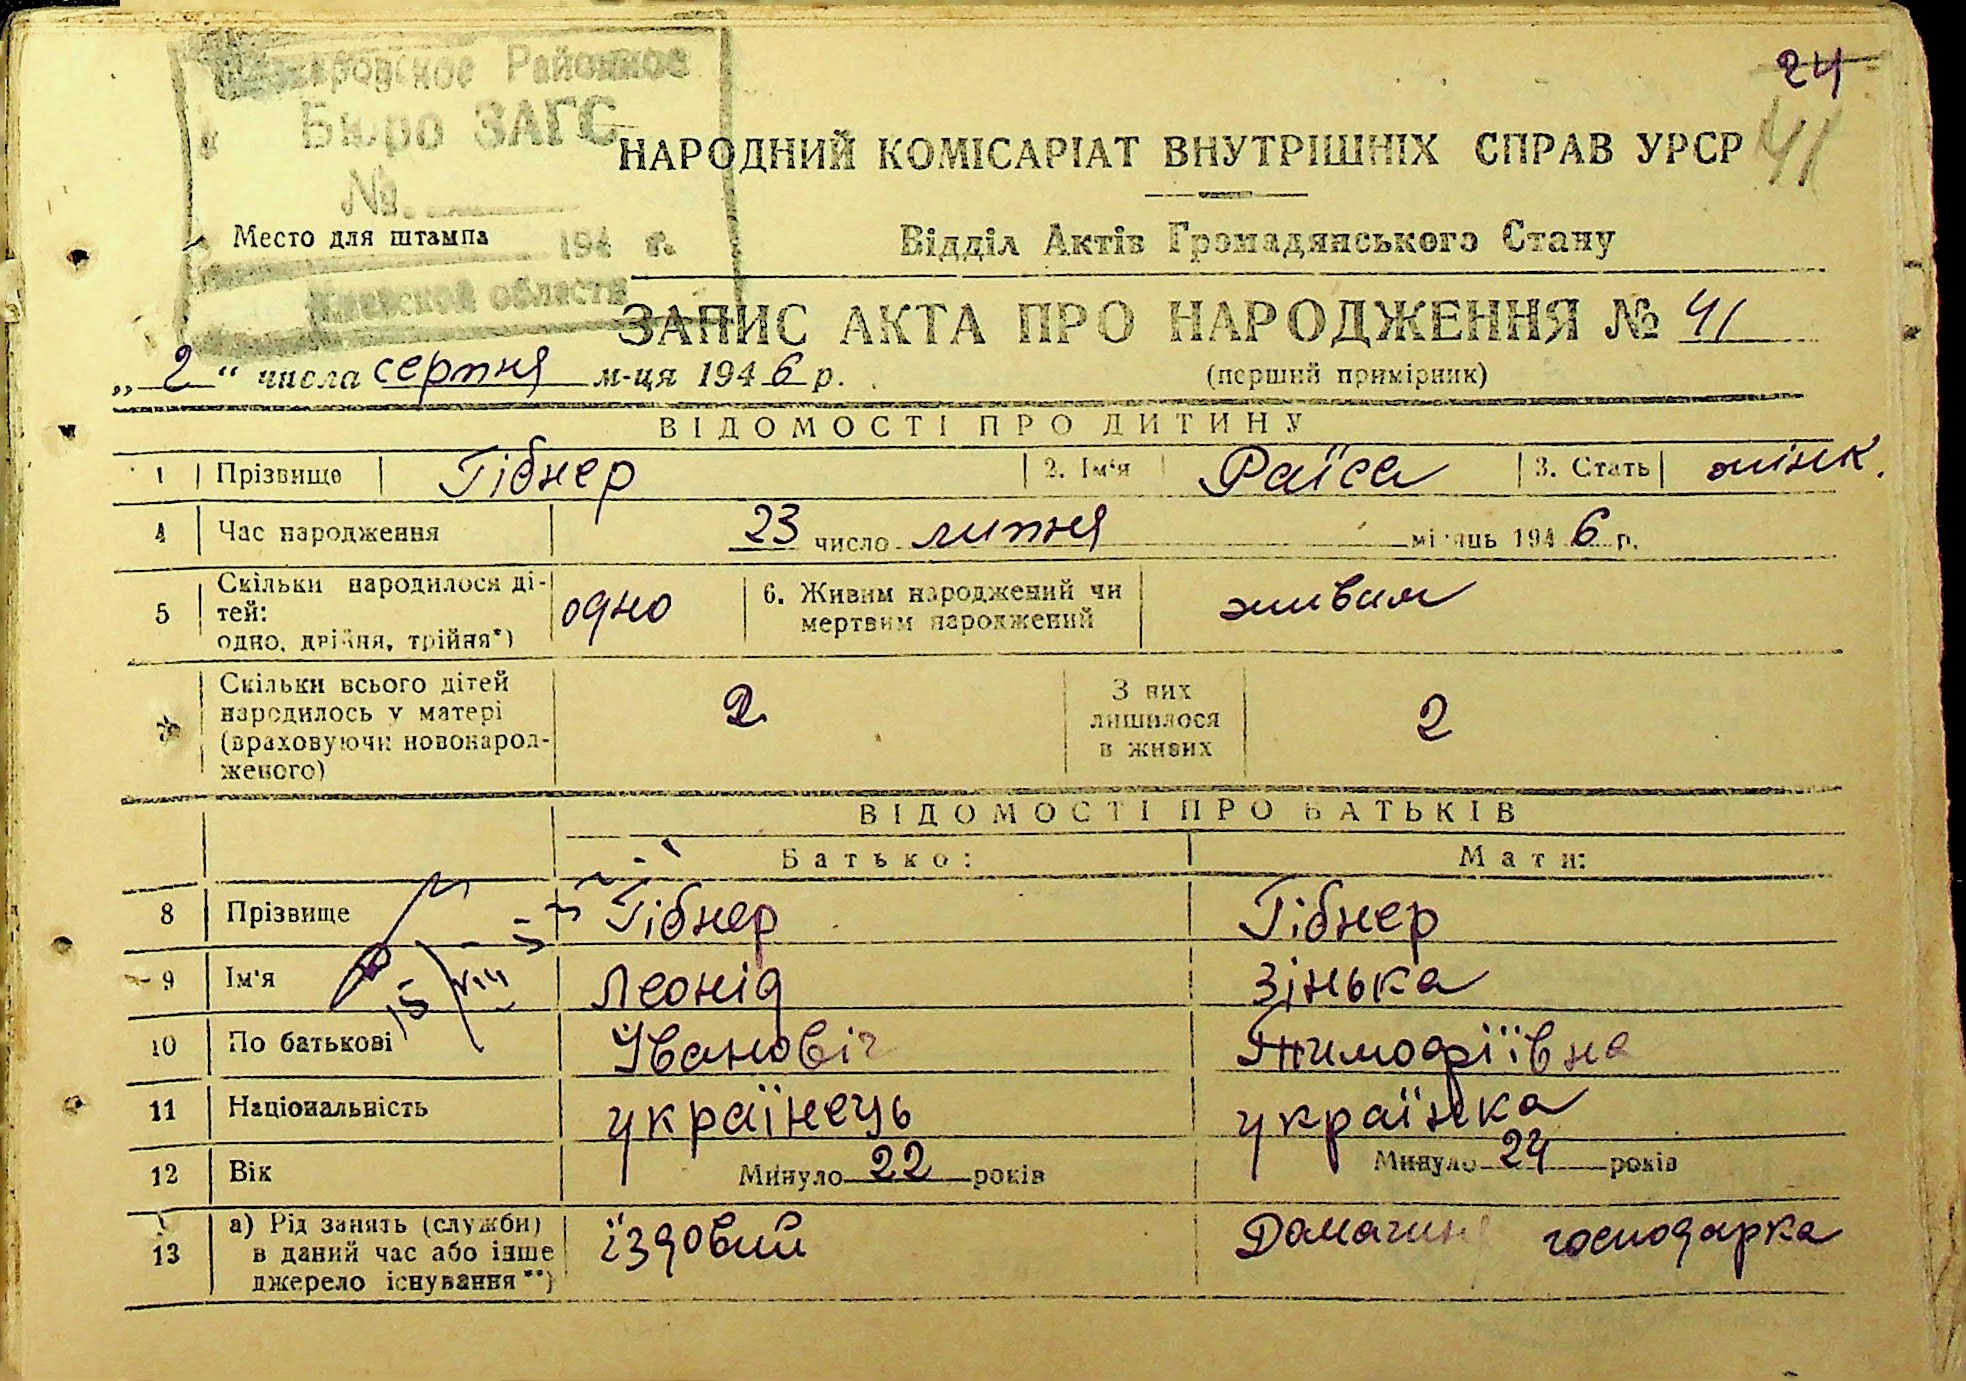 24
Районное
Бюро ЗАГС
№.
НАРОДНИЙ КОМІСАРІАТ ВНУТРІШНІХ СПРАВ УРСР 41
Место для штампа 194 г.
Відділ Актів Громадянського Стану
Киевской области
ЗАПИС АКТА ПРО НАРОДЖЕННЯ № 41
„2“ числа серпня м-ця 1946 р. (перший примірник)
ВІДОМОСТІ ПРО ДИТИНУ
1 Прізвище Гібнер 2. Ім'я Раїса 3. Стать жінк.
4 Час народження 23 число липня місяць 1946 р.
5 Скільки народилося ді-
тей:
одно, двійня, трійня*) одно 6. Живим народжений чи
мертвим народжений живим
Скільки всього дітей
народилось у матері
(враховуючи новонарод-
женого) 2 З них
лишилося
в живих 2
ВІДОМОСТІ ПРО БАТЬКІВ
Батько: Мати:
8 Прізвище Гібнер Гібнер
9 Ім'я Леонід Зінька
10 По батькові Івановіч Тимофіївна
11 Національність українець українка
12 Вік Минуло 22 років Минуло 24 років
13 а) Рід занять (служби)
в даний час або інше
джерело існування**) їздовий Домашня господарка